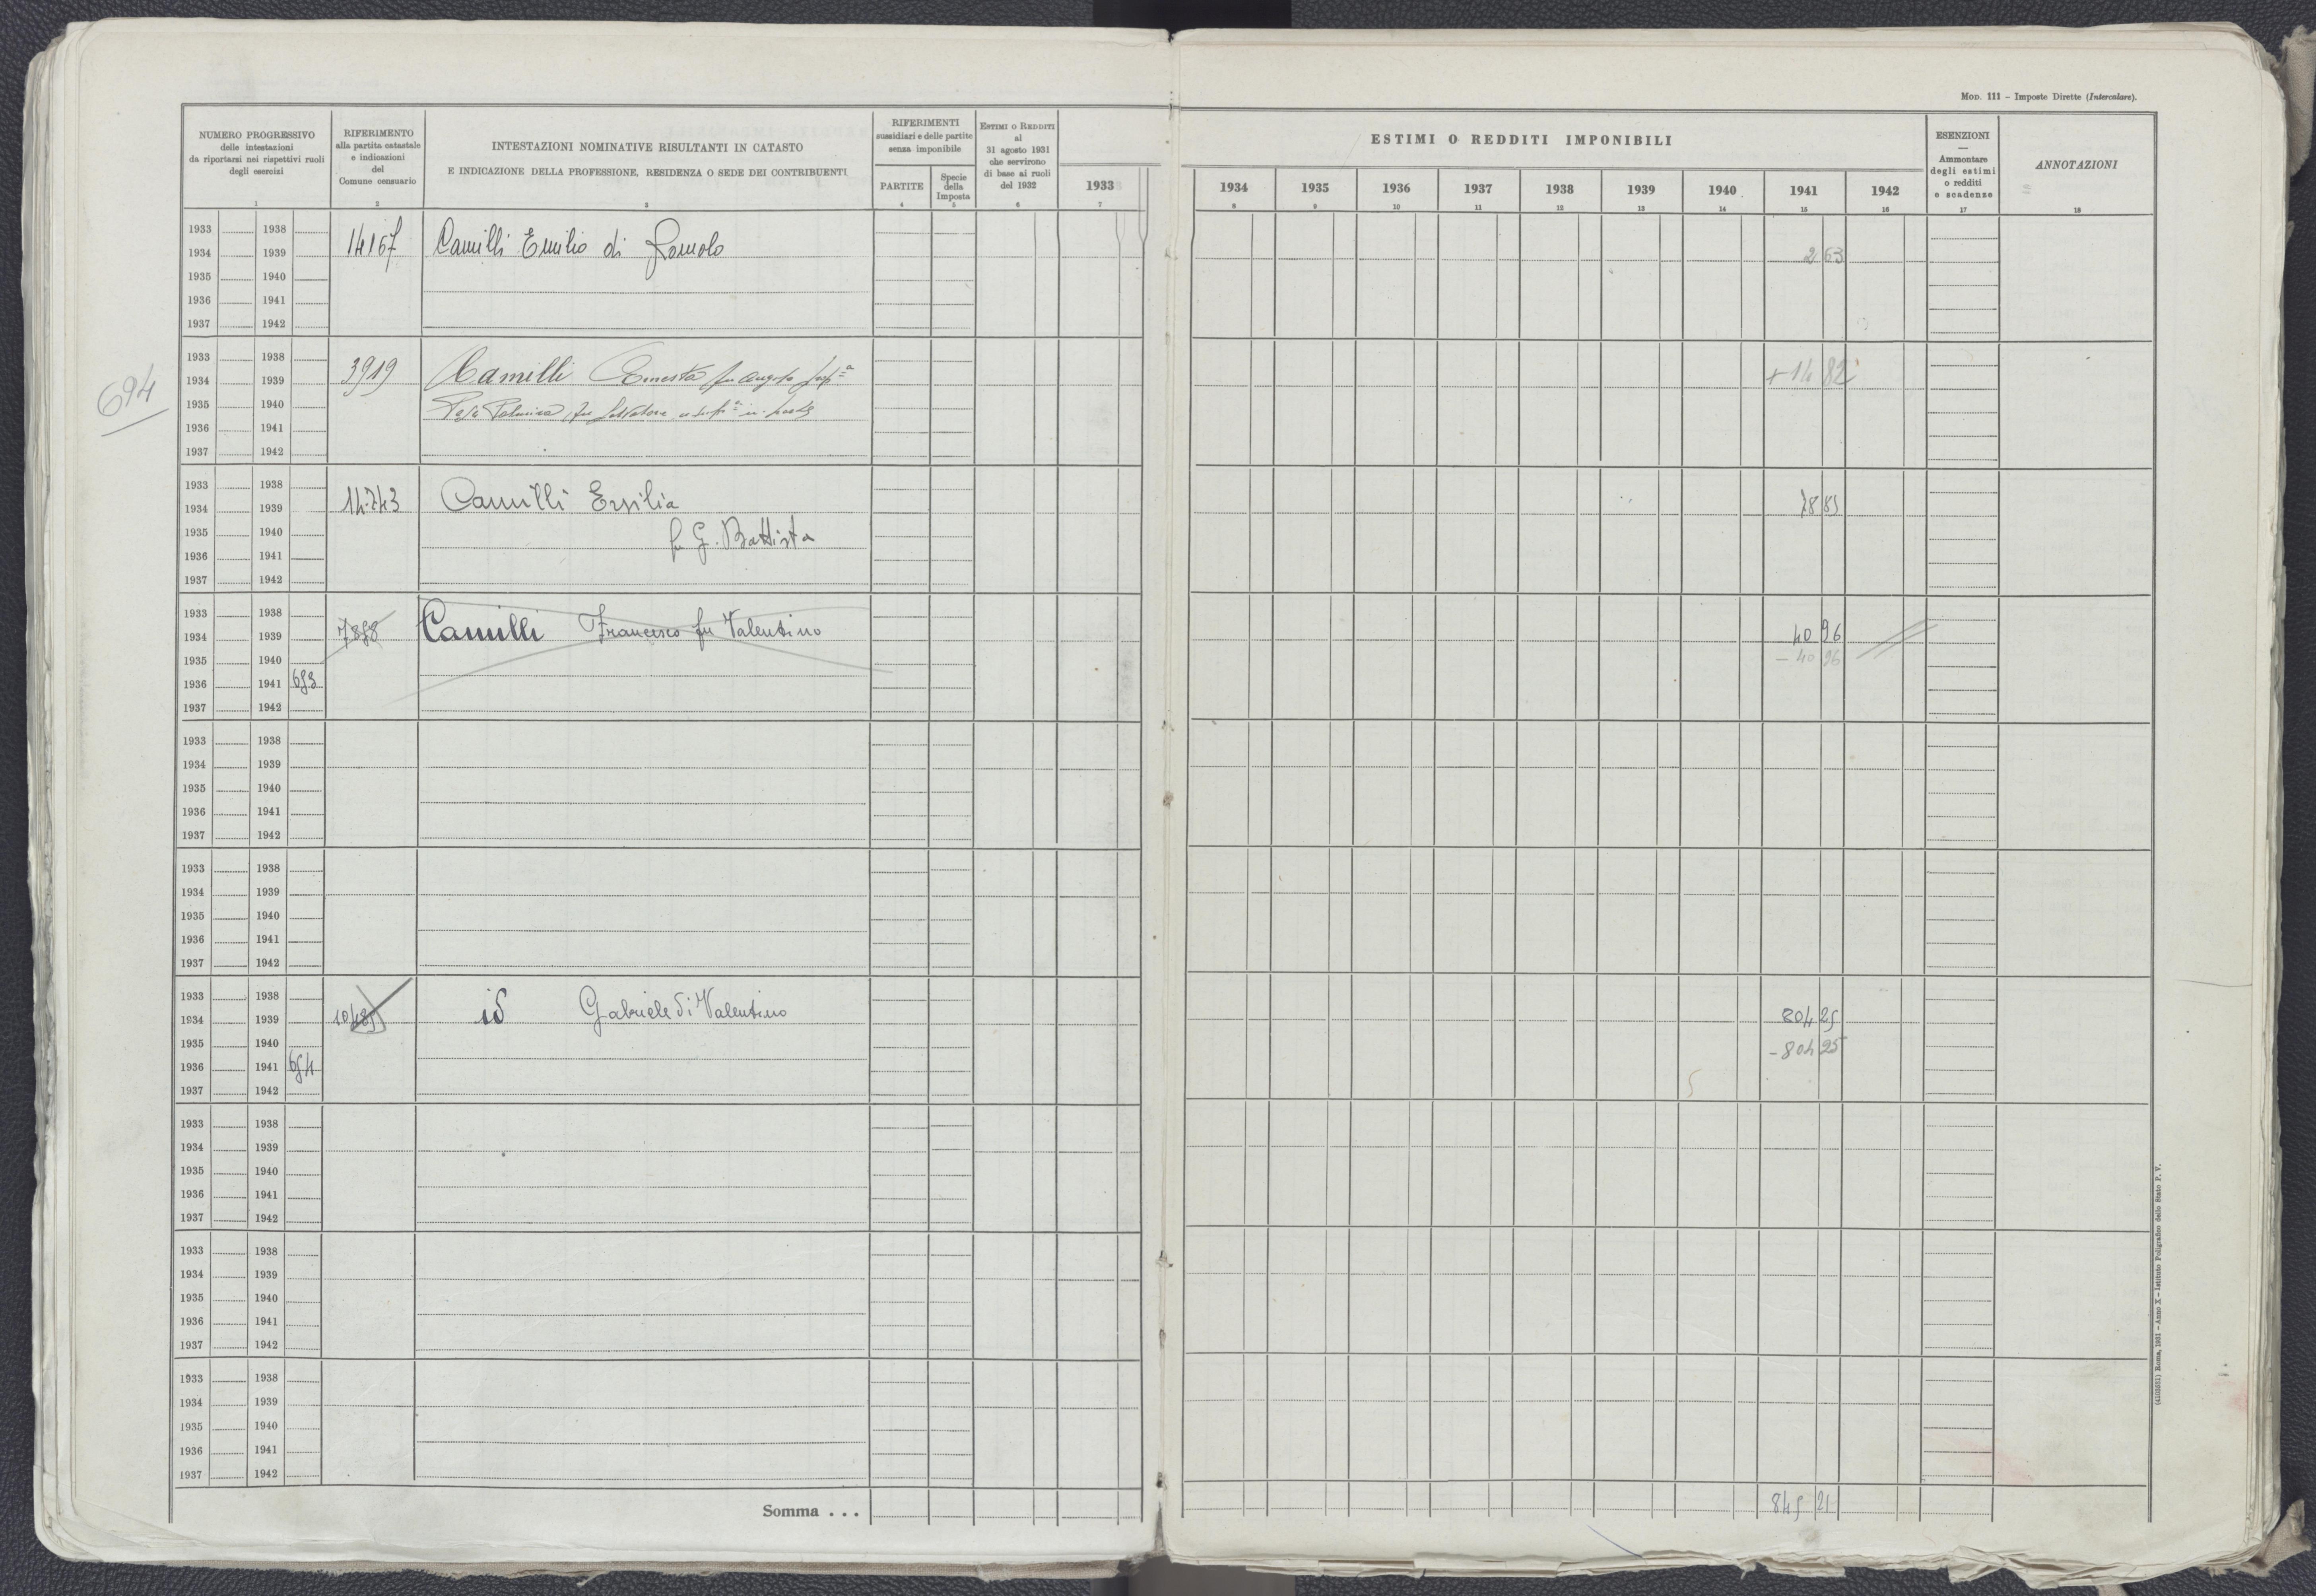 MOD. 111 – Imposte Dirette (Intercalare).
NUMERO PROGRESSIVO
delle intestazioni
da riportarsi nei rispettivi ruoli
degli esercizi
1
RIFERIMENTO
alla partita catastale
e indicazioni
del
Comune censuario
2
INTESTAZIONI NOMINATIVE RISULTANTI IN CATASTO
E INDICAZIONE DELLA PROFESSIONE, RESIDENZA O SEDE DEI CONTRIBUENTI
3
RIFERIMENTI
sussidiari e delle partite
senza imponibile
PARTITE
4
Specie
della
Imposta
5
ESTIMI O REDDITI
al
31 agosto 1931
che servirono
di base ai ruoli
del 1932
6
ESTIMI O REDDITI IMPONIBILI
1933 1934 1935 1936 1937 1938 1939 1940 1941 1942
7 8 9 10 11 12 13 14 15 16
ESENZIONI
—
Ammontare
degli estimi
o redditi
e scadenze
17
ANNOTAZIONI
18
1933 1938
1934 1939 14167 Camilli Emilio di Romolo 2 63
1935 1940
1936 1941
1937 1942
694
1933 1938
1934 1939 3919 Camilli Ernesta fu + 14 82
1935 1940
1936 1941
1937 1942
1933 1938
1934 1939 14743 Camilli Ersilia 78
1935 1940 fu G. Battista
1936 1941
1937 1942
1933 1938
1934 1939 Camilli Francesco fu Valentino 40 96
1935 1940 – 40 96
1936 1941 693
1937 1942
1933 1938
1934 1939
1935 1940
1936 1941
1937 1942
1933 1938
1934 1939
1935 1940
1936 1941
1937 1942
1933 1938
1934 1939 id Gabriele di Valentino 804 25
1935 1940 – 804 25
1936 1941 694
1937 1942
1933 1938
1934 1939
1935 1940
1936 1941
1937 1942
1933 1938
1934 1939
1935 1940
1936 1941
1937 1942
1933 1938
1934 1939
1935 1940
1936 1941
1937 1942
Somma . . . 845 21
(4103651) Roma, 1932 – Anno X – Istituto Poligrafico dello Stato P. V.